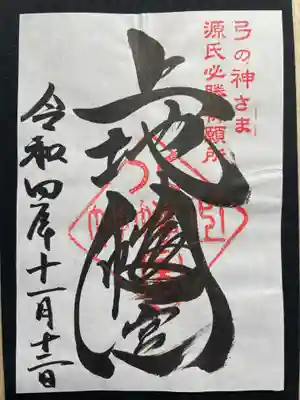 弓の神さま
源氏必勝祈願所
上地八幡宮
令和四年十一月十三日